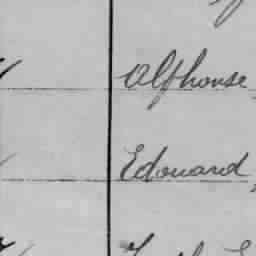 Alfhonse
Edouard,